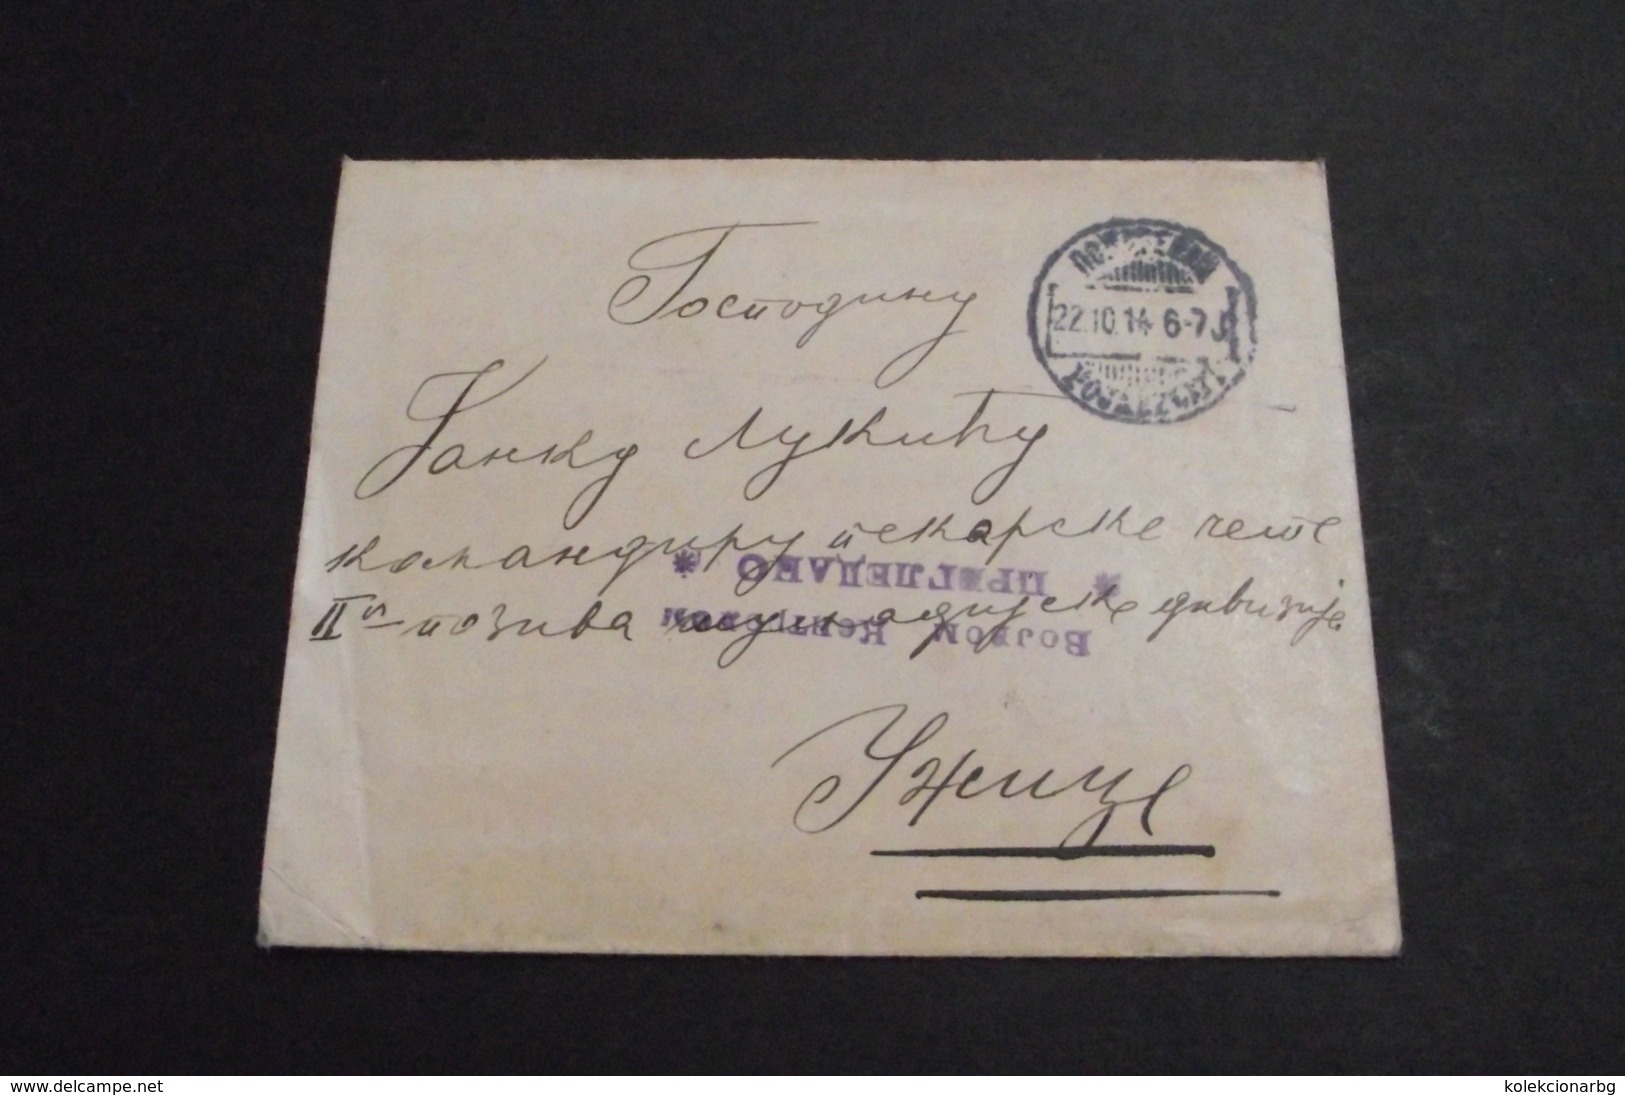 Господину
22.10.14 6-7
Јанку Лукићу
командиру пекарске чете
* ПРЕГЛЕДАНО *
IIог позива шумадијске дивизије
Војном
Ужице
www.delcampe.net
kolekcionarbg